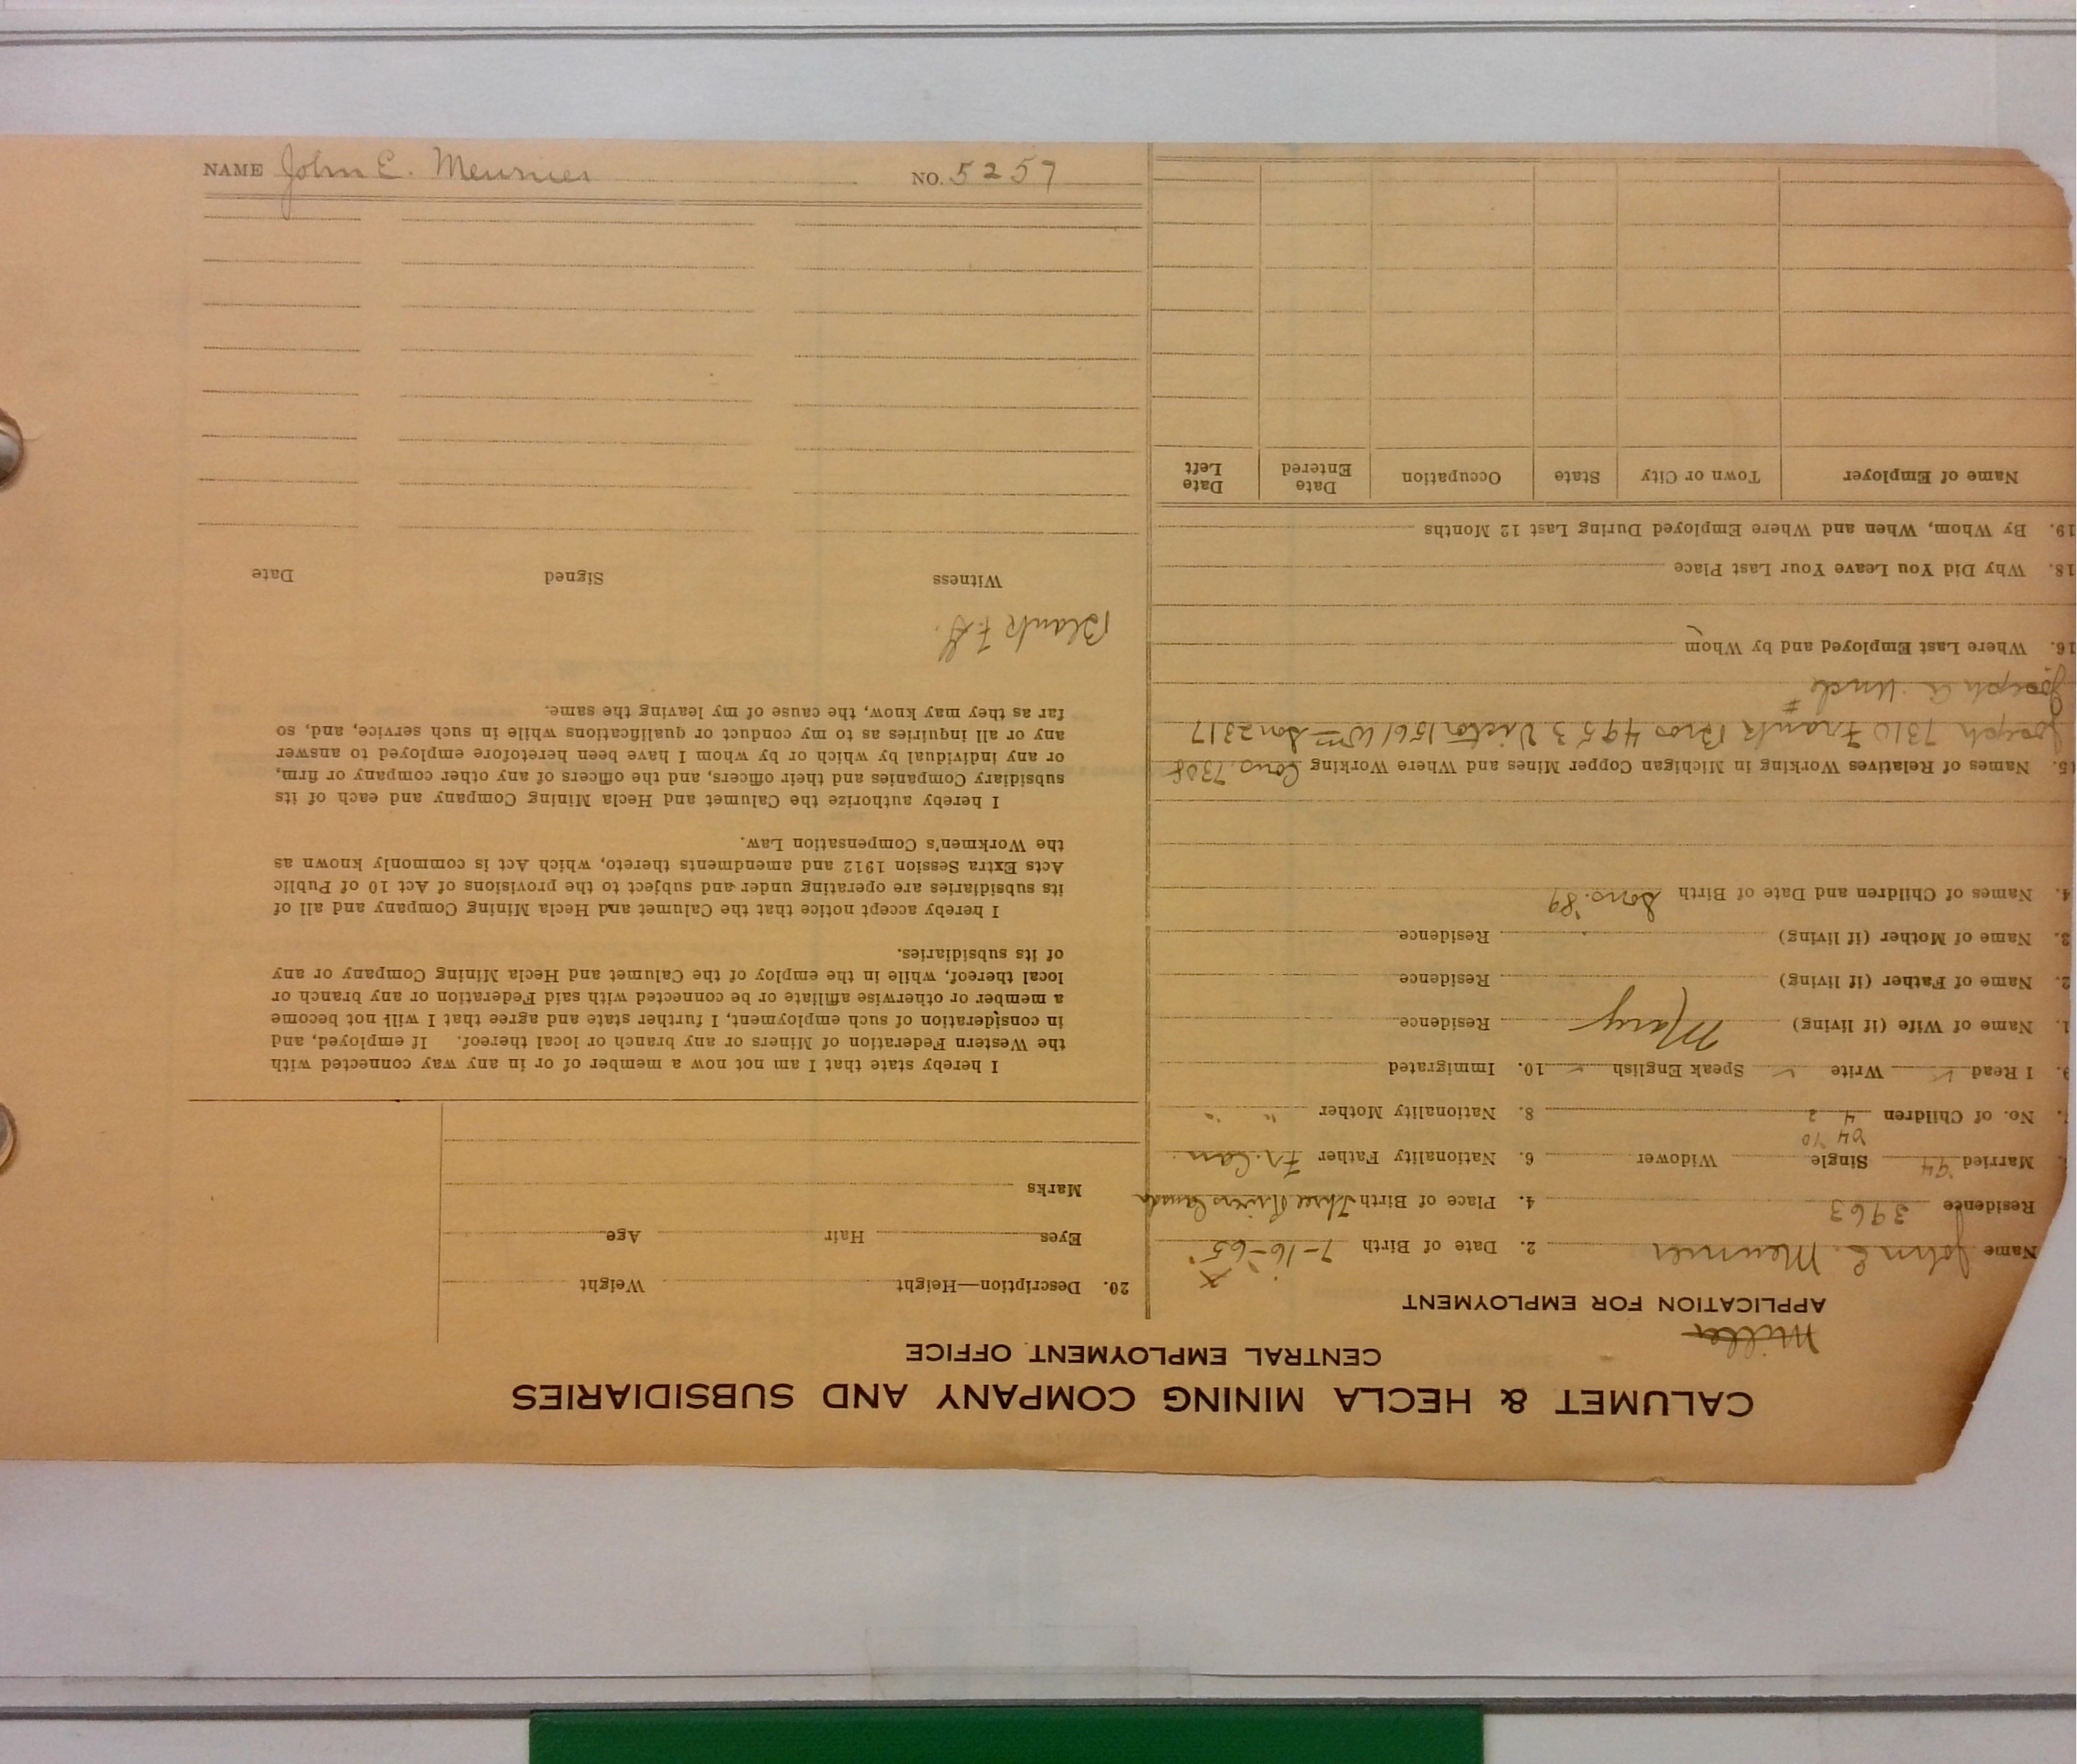 CALUMET & HECLA MINING COMPANY AND SUBSIDIARIES
CENTRAL EMPLOYMENT OFFICE
Miller
APPLICATION FOR EMPLOYMENT
Name John E. Meunier 2. Date of Birth 7-16-65
Residence 3963 4. Place of Birth Three Rivers Canada
Married '94 Single Widower 6. Nationality Father Fr. Can.
'04 '10
No. of Children 4 2 8. Nationality Mother " "
9. I Read ✓ Write ✓ Speak English ✓ 10. Immigrated
1. Name of Wife (if living) Mary Residence
2. Name of Father (if living) Residence
3. Name of Mother (if living) Residence
4. Names of Children and Date of Birth Sons. '89
15. Names of Relatives Working in Michigan Copper Mines and Where Working Cons. 7308
Joseph 7310 Frank Bros 4953 Victor 1561 Wm Son 2317
Joseph G. Uncle #
16. Where Last Employed and by Whom
18. Why Did You Leave Your Last Place
19. By Whom, When and Where Employed During Last 12 Months
Name of Employer Town or City State Occupation Date Entered Date Left
20. Description—Height Weight
Eyes Hair Age
Marks
I hereby state that I am not now a member of or in any way connected with
the Western Federation of Miners or any branch or local thereof. If employed, and
in consideration of such employment, I further state and agree that I will not become
a member or otherwise affiliate or be connected with said Federation or any branch or
local thereof, while in the employ of the Calumet and Hecla Mining Company or any
of its subsidiaries.
I hereby accept notice that the Calumet and Hecla Mining Company and all of
its subsidiaries are operating under and subject to the provisions of Act 10 of Public
Acts Extra Session 1912 and amendments thereto, which Act is commonly known as
the Workmen's Compensation Law.
I hereby authorize the Calumet and Hecla Mining Company and each of its
subsidiary Companies and their officers, and the officers of any other company or firm,
or any individual by which or by whom I have been heretofore employed to answer
any or all inquiries as to my conduct or qualifications while in such service, and, so
far as they may know, the cause of my leaving the same.
Blank F.G.
Witness Signed Date
NAME John E. Meunier NO. 5257